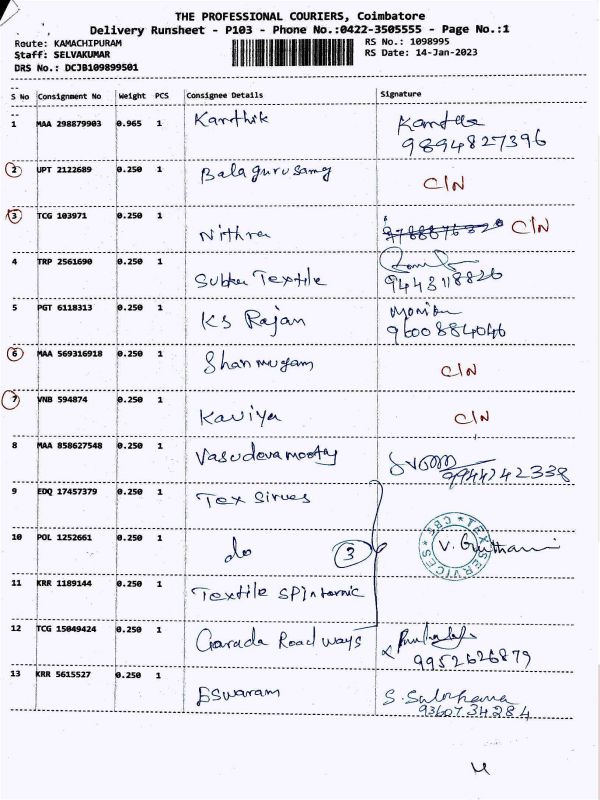 THE PROFESSIONAL COURIERS, Coimbatore
Delivery Runsheet - P103 - Phone No.:0422-3505555 - Page No.:1
Route: KAMACHIPURAM RS No.: 1098995
Staff: SELVAKUMAR RS Date: 14-Jan-2023
DRS No.: DCJB109899501
S No Consignment No Weight PCS Consignee Details Signature
1 MAA 298879903 0.965 1 Karthik
9894827396
2 UPT 2122689 0.250 1 Balagurusamy C/N
3 TCG 103971 0.250 1 Nithra C/N
4 TRP 2561690 0.250 1 Textile
9443118826
5 PGT 6118313 0.250 1 KS Rajan
9600884046
6 MAA 569316918 0.250 1 Shanmugam C/N
7 VNB 594874 0.250 1 Kaviya C/N
8 MAA 858627548 0.250 1 Vasudevamooty
9944242338
9 EDQ 17457379 0.250 1 Tex Sirves
10 POL 1252661 0.250 1 do 3
TEX SERVICES * CBE *
11 KRR 1189144 0.250 1 Textile
12 TCG 15049424 0.250 1 Garada Road ways
9952626879
13 KRR 5615527 0.250 1 Eswaram
9360734284